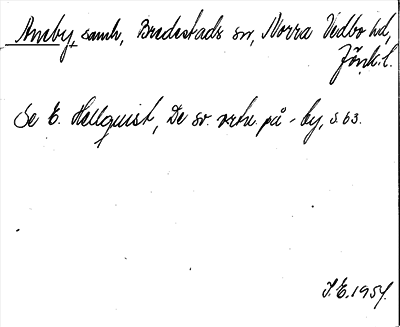 Aneby, samh, Bredestads sn, Norra Vedbo hd,
Jönk. l.
Se E. Hellquist, De sv. ortn. på -by, s. 63.
S.E. 1954.